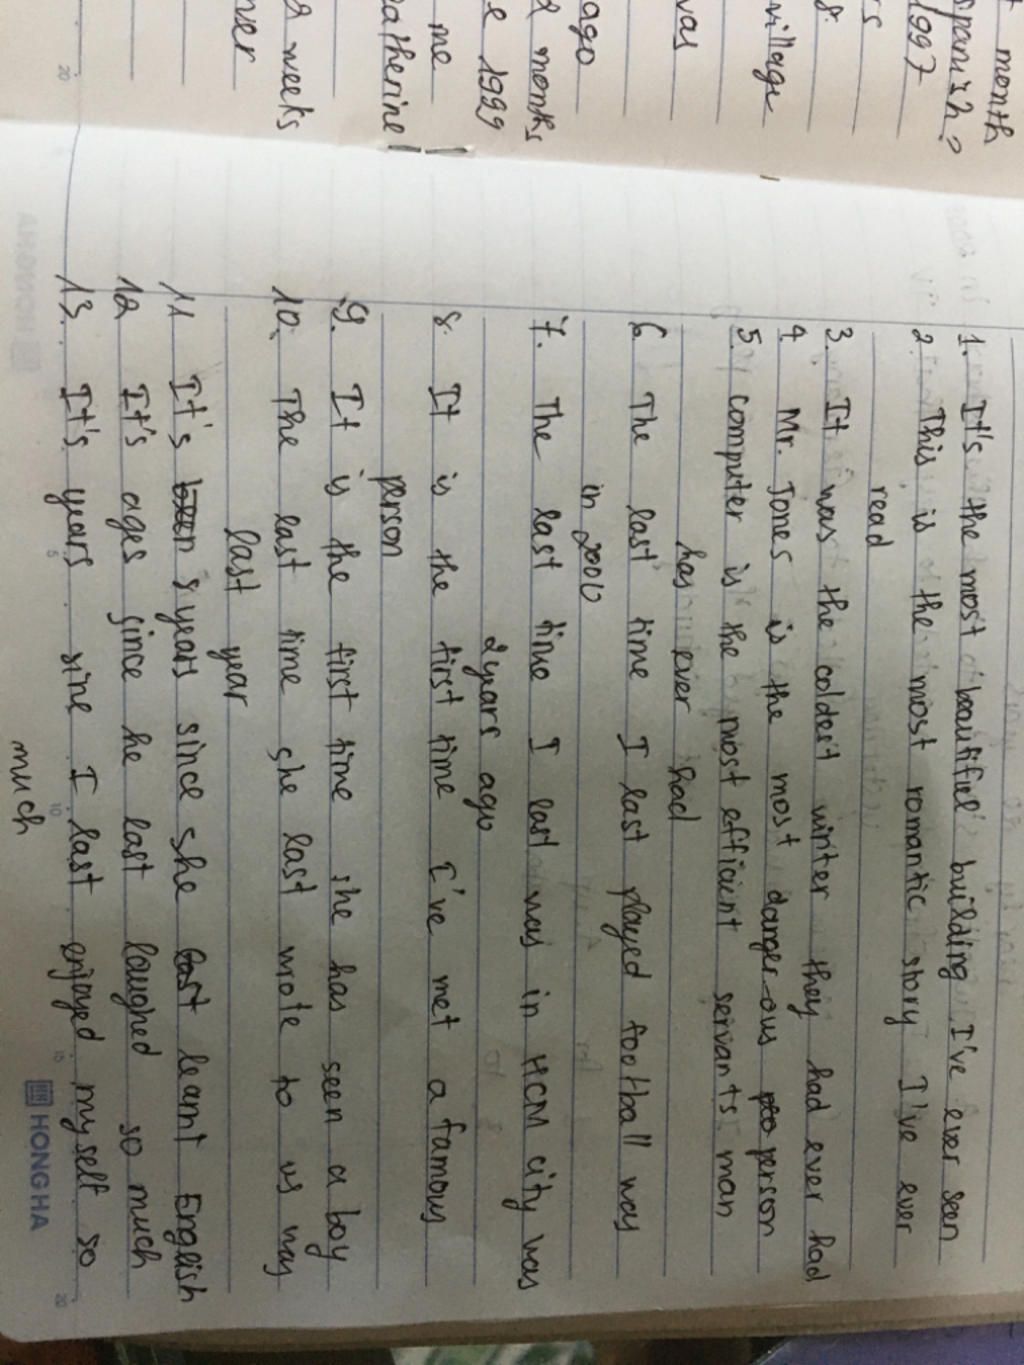 t month
spanish?
1997
rs
8.
village
vas
ago
2 months
e 1999
me
atherine
2 weeks
swer
1. It's the most beautiful building I've ever seen
2. This is the most romantic story I've ever
read
3. It was the coldest winter they had ever had
4. Mr. Jones is the most danger-ous person
5. computer is the most efficient servants man
has over had
6. The last time I last played football was
in 2006
7. The last time I last was in HCM city was
2 years ago
8. It is the first time I've met a famous
person
9. It is the first time she has seen a boy
10. The last time she last wrote to us was
last year
11 It's been 8 years since she last learnt English
12 It's ages since he last laughed so much
13. It's years sine I last enjoyed myself so
much
HONG HA
5
10
15
20
20